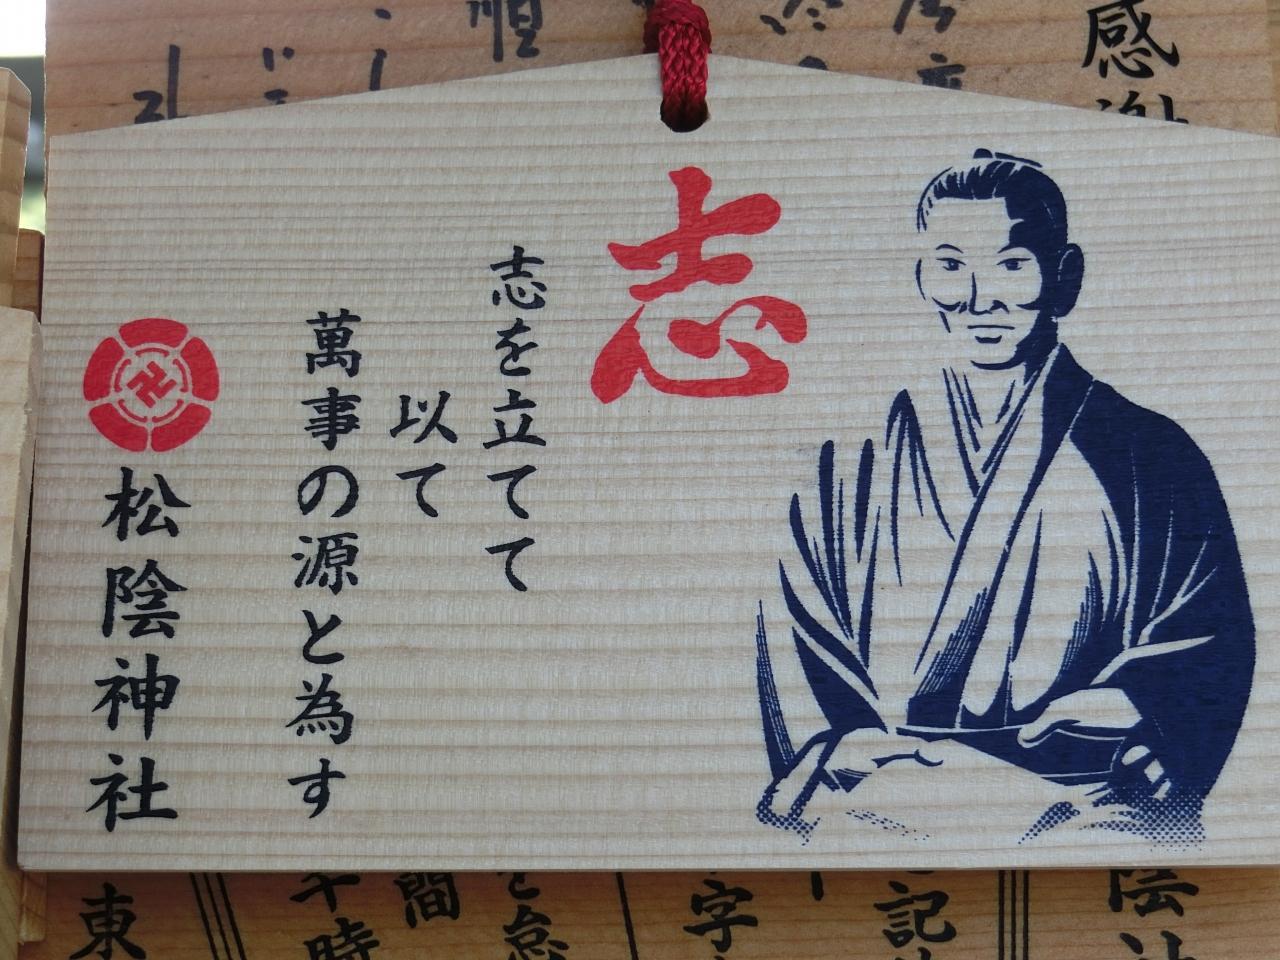 志
志を立てて
以て
萬事の源と為す
松陰神社
感謝
字
記
陰
間
時
東